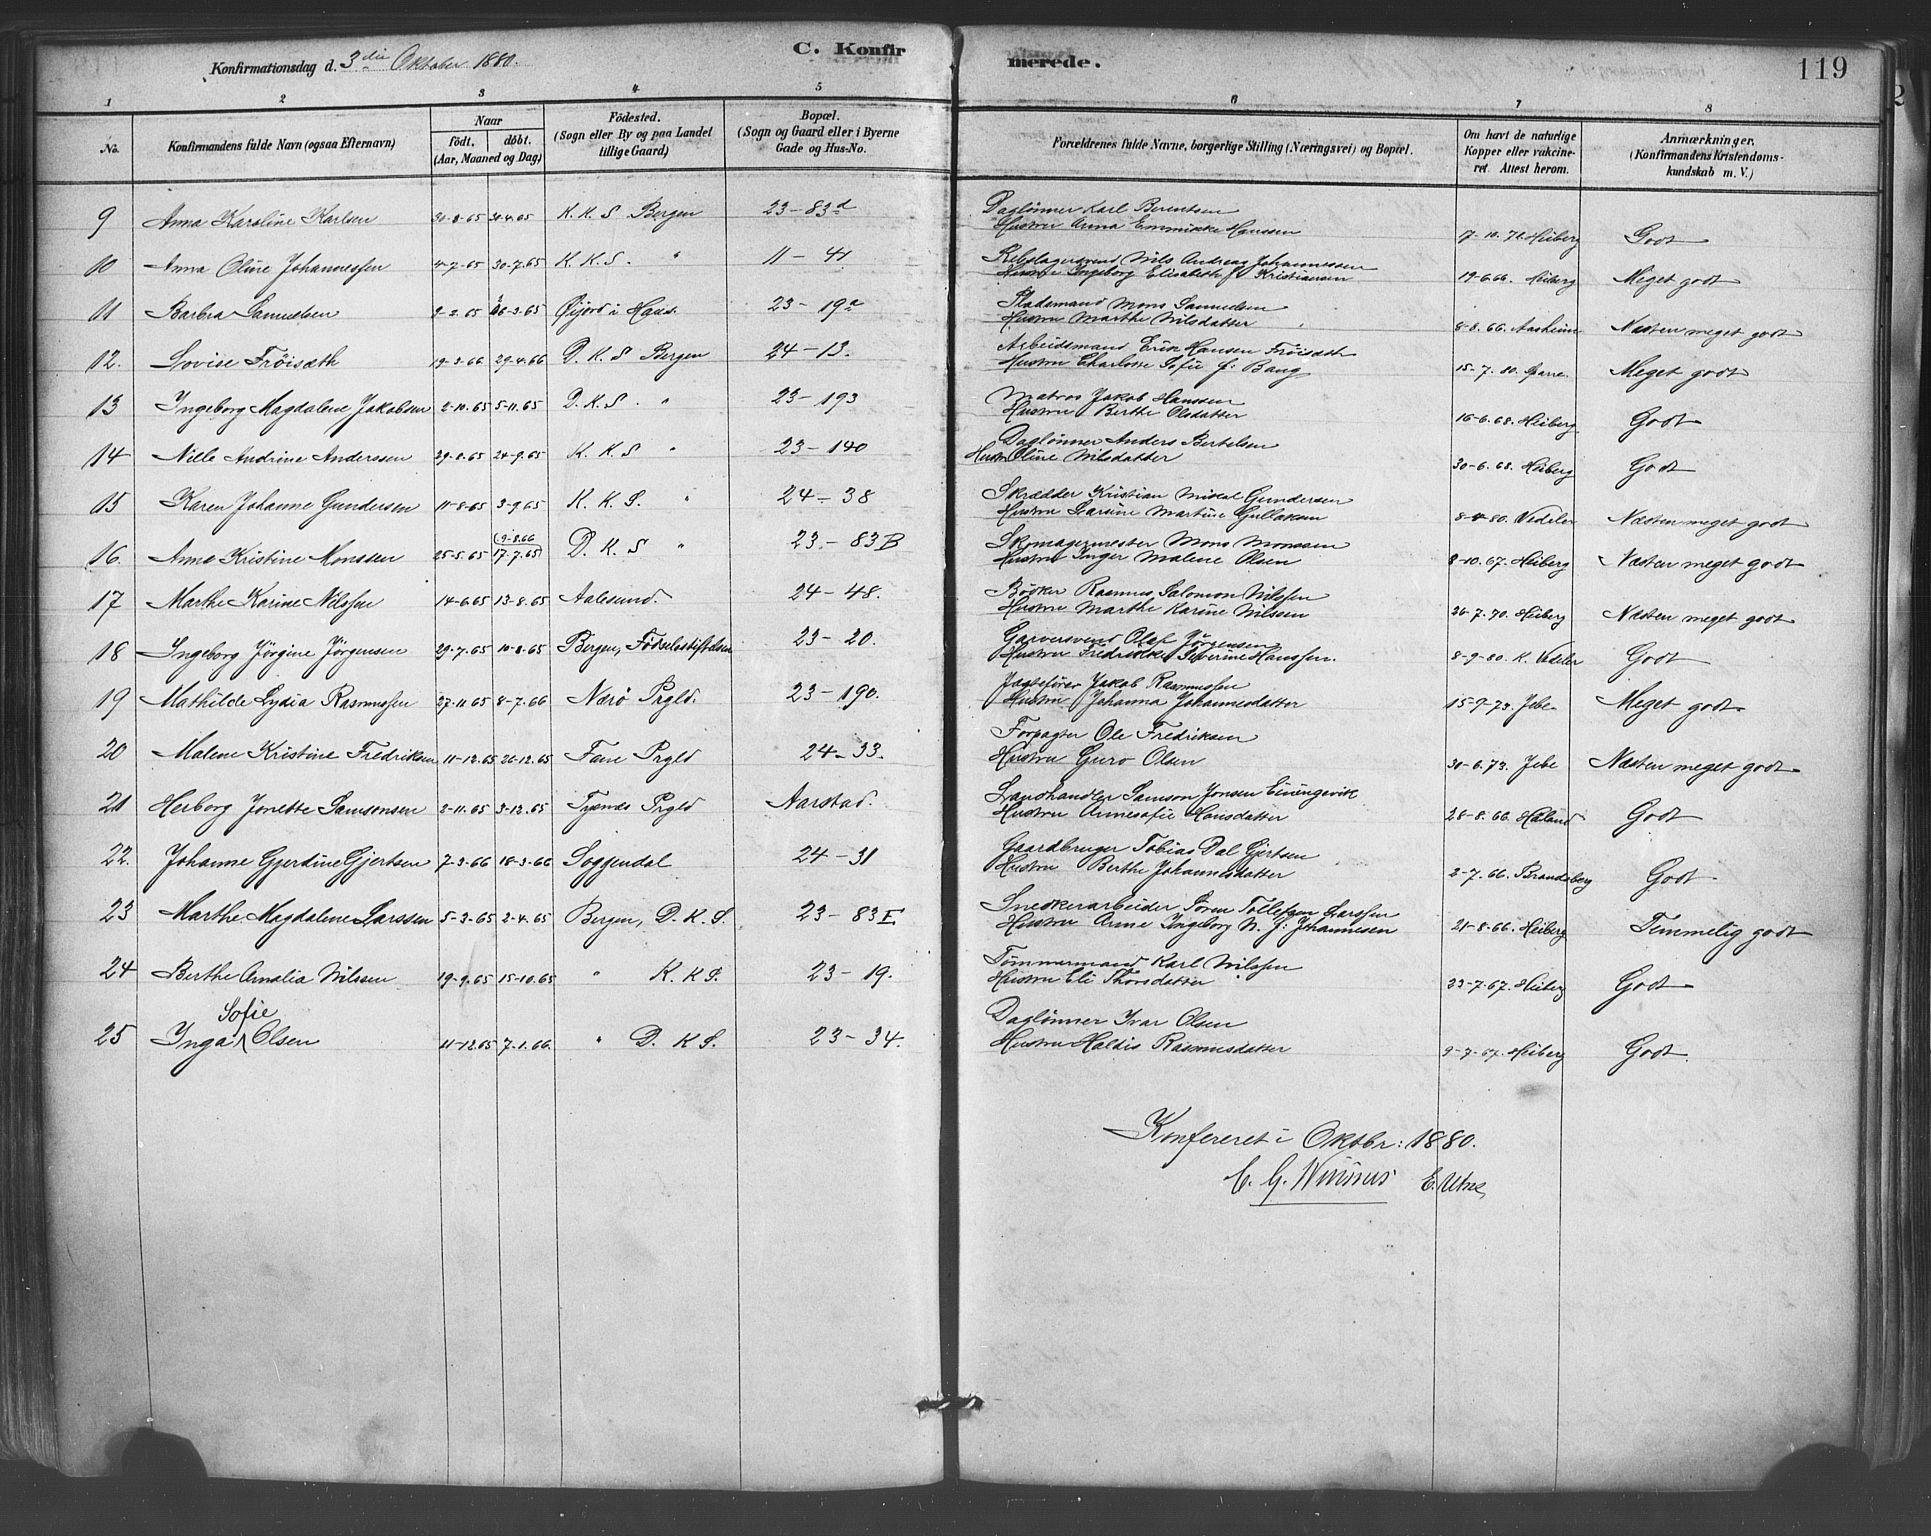 C. Konfirmerede.
119
Konfirmationsdag d. 3die Oktober 1880.
1 2 3 4 5 6 7 8
No. Konfirmandens fulde Navn (ogsaa Efternavn) Naar født. døbt. (Aar, Maaned og Dag) Fødested. (Sogn eller By og paa Landet tillige Gaard) Bopæl. (Sogn og Gaard eller i Byerne Gade og Hus-No. Forældrenes fulde Navne, borgerlige Stilling (Næringsvei) og Bopæl. Om havt de naturlige Kopper eller vakcineret. Attest herom. Anmærkninger. (Konfirmandens Kristendomskundskab m. V.)
9 Anna Karoline Karlsen 30-3-65 30-4-65 K. K. S. Bergen 23-83d Daglønner Karl Berentsen
Hustru Anna Emmikke Hanssen 7-10-72 Heiberg Godt
10 Anna Oline Johannessen 4-7-65 30-7-65 K. K. S. " 11-41 Rebslagersvend Nils Andreas Johannessen
Hustru Ingeborg Elisabeth f. Kristiansen 19-6-66. Heiberg Meget godt
11 Barbra Samuelsen 2-2-65 26-3-65 Øijord i Haus. 23-19a Pladsmand Mons Samuelsen
Hustru Marthe Nilsdatter 8-8-66 Aasheim Næsten meget godt
12. Lovise Frøisæth 19-3-66 29-4-66 D. K. S Bergen 24-13. Arbeidsmand Erik Hansen Frøisæth
Hustru Charlotte Sofie f: Bang 15-7-80. Meget godt
13 Ingeborg Magdalene Jakobsen 2-10-65 5-11-65 D. K. S. " 23-193 Matros Jakob Hanssen
Hustru Berthe Olsdatter 16-6-68. Heiberg Godt
14 Nille Andrine Anderssen 29-8-65 24-9-65 K. K. S " 23-140 Daglønner Anders Bertelsen
Hustru Oline Nilsdatter 30-6-68. Heiberg Godt
15 Karen Johanne Gundersen 11-8-65 3-9-65 K. K. S. " 24-38 Skrædder Kristian Mikal Gundersen
Hustru Larsine Martine Gullaksen 8-4-80. Vedeler Næsten meget godt
16. Anna Kristine Monssen 25-5-65 (9-8.66 17-7-65) D. K. S " 23-83B Skomagermester Mons Monssen
Hustru Inger Malene Olsen 8-10-67. Heiberg Næsten meget godt
17 Marthe Karine Nilssen 14-6-65 13-8-65 Aalesund. 24-48. Bødker Rasmus Salomon Nilssen
Hustru Marthe Karine Nilssen 26-7-70. Heiberg Næsten meget godt
18 Ingeborg Jørgine Jørgensen 29-7-65 10-8-65 Bergen, Fødselsstiftelsen 23-20. Garversvend Olaf Jørgensen
Hustru Fredrikke Severine Hanssen. 8-9-80. K. Vedeler Godt
19 Mathilde Lydia Rasmussen 27-11-65 8-7-66 Nærø Prgld. 23-190. Jægtefører Jakob Rasmussen
Hustru Johanna Johannesdatter 15-9-73. Jebe Meget godt
20 Malene Kristine Fredriksen 11-12-65 26-12-65 Fane Prgld 24-33. Forpagter Ole Fredriksen
Hustru Guro Olsen 30-6-73. Jebe Næsten meget godt
21 Herborg Jonette Samsonsen 2-11-65 3-12-65 Tysnes Prgld Aarstad. Landhandler Samson Jonsen
Hustru Annesofie Hansdatter 28-8-66. Haland Godt
22. Johanne Gjerdine Gjertsen 7-3-66 18-3-66 Soggendal 24-31 Gaardbruger Tobias Dal Gjertsen
Hustru Berthe Johannesdatter 2-7-66. Brandsberg Godt
23 Marthe Magdalene Larssen 5-3-65 2-4-65 Bergen, D. K. S. 23-83E Snedkerarbeider Søren Tollefsen Larssen
Hustru Anne Ingeborg N. f: Johannesen 21-8-66. Heiberg Temmelig godt
24 Berthe Amalia Nilssen 19-9-65 15-10-65 " K. K. S. 23-19. Tømmermand Karl Nilssen
Hustru Eli Thorsdatter 23-7-67. Heiberg Godt
25 Inga Sofie Olsen 11-12-65 7-1-66. " D. K. S. 23-34. Daglønner Ivar Olsen
Hustru Haldis Rasmusdatter 9-7-67. Heiberg Godt.
Konfereret i Oktbr: 1880.
C. G. E. Utne,